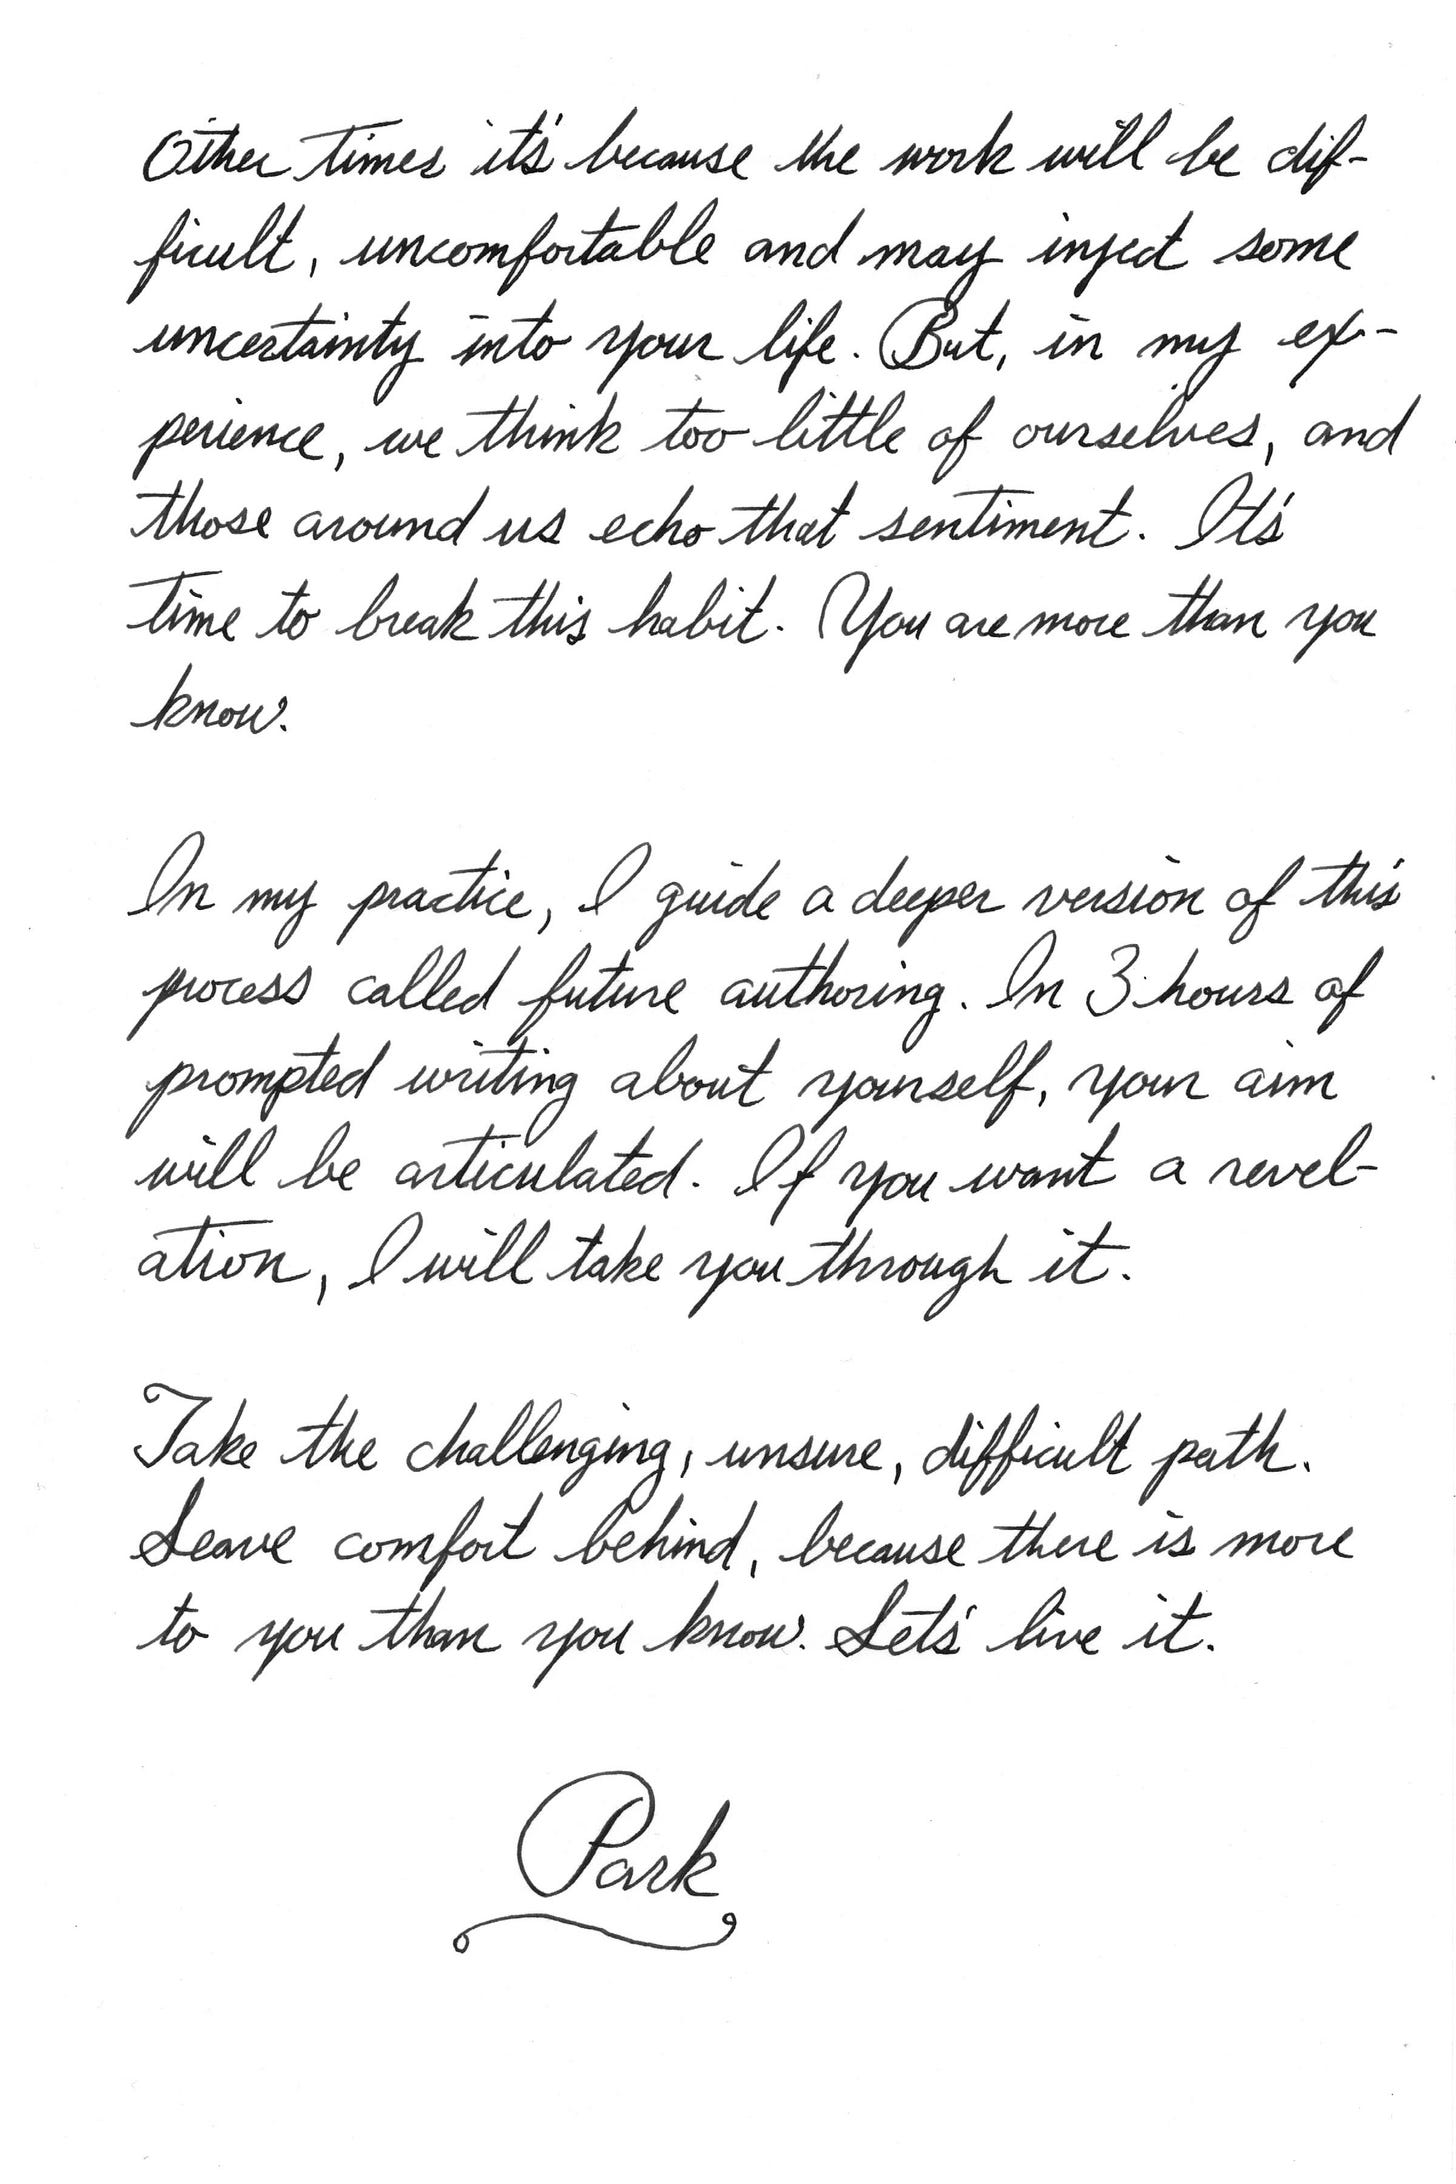 Other times it's because the work will be dif-
ficult, uncomfortable and may inject some
uncertainty into your life. But, in my ex-
perience, we think too little of ourselves, and
those around us echo that sentiment. It's
time to break this habit. You are more than you
know.
In my practice, I guide a deeper version of this
process called future authoring. In 3 hours of
prompted writing about yourself, your aim
will be articulated. If you want a revel-
ation, I will take you through it.
Take the challenging, unsure, difficult path.
Leave comfort behind, because there is more
to you than you know. Let's live it.
Park